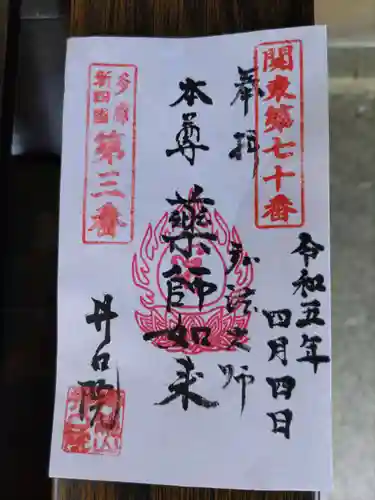 関東第七十番
奉拝
令和五年
四月四日
弘法大師
本尊
薬師如来
多摩
新四国
第三番
井口院